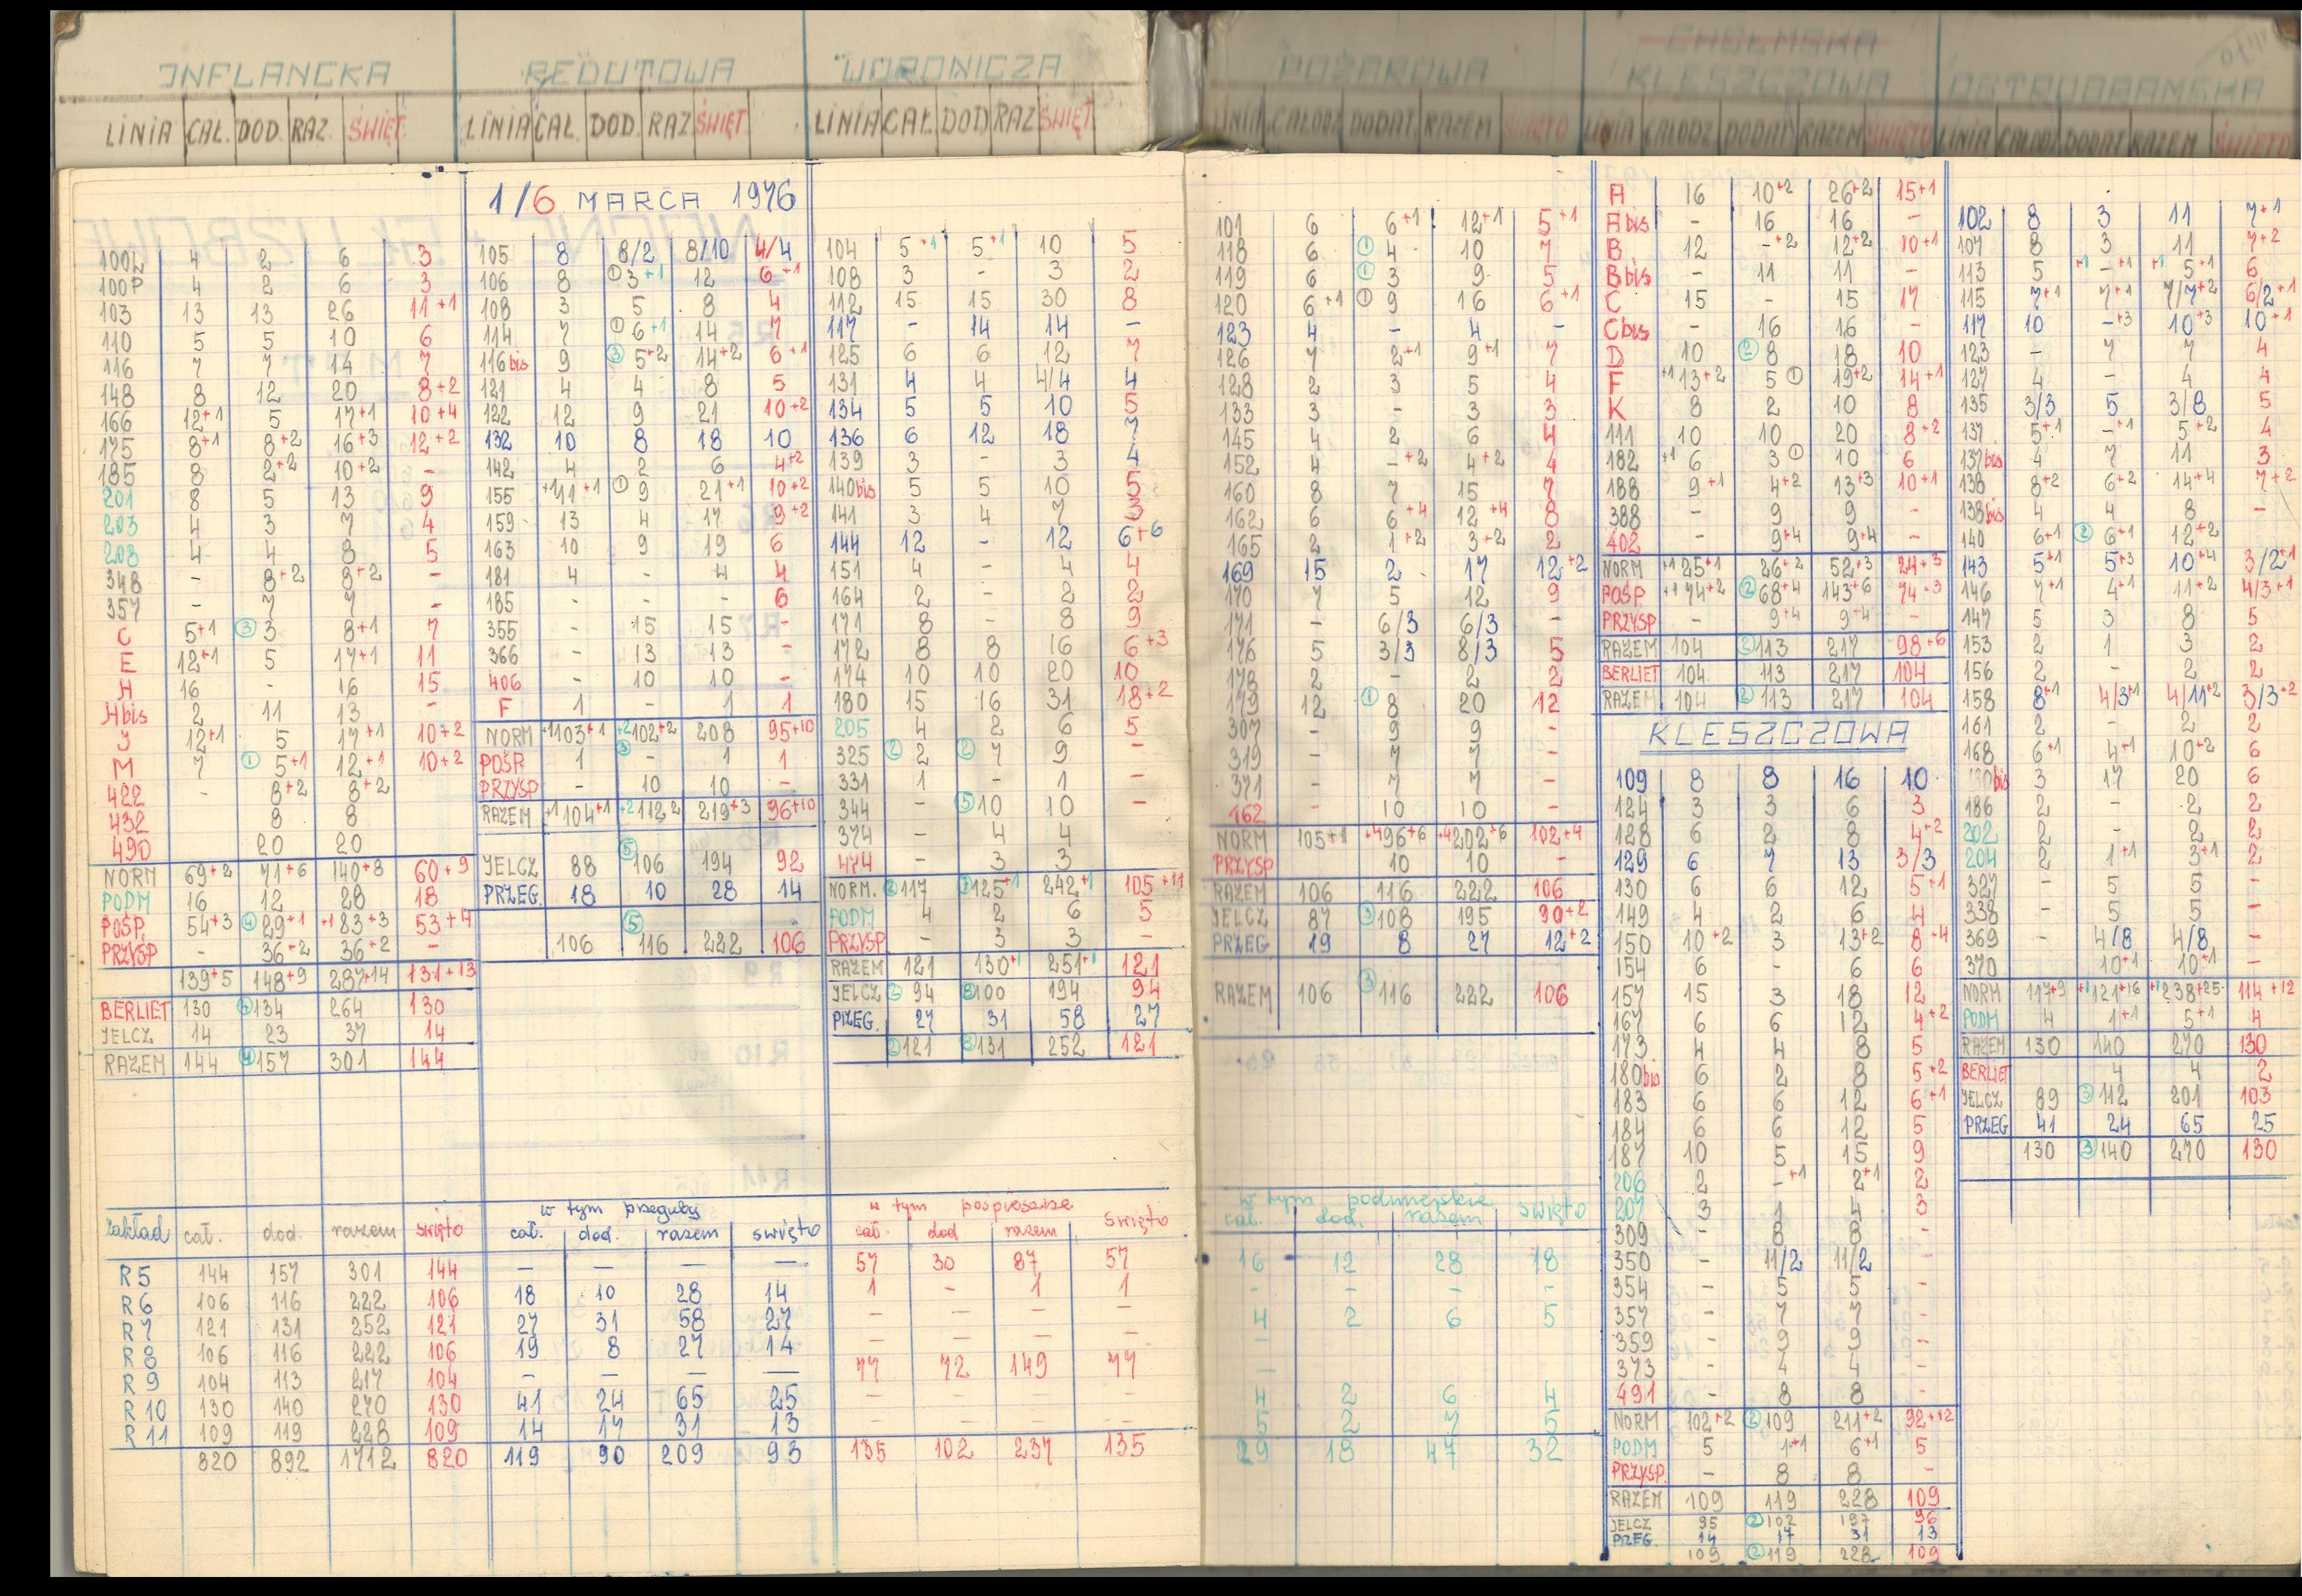 INFLANCKA
LINIA CAŁ. DOD. RAZ. ŚWIĘT.
100L 4 2 6 3
100P 4 2 6 3
103 13 13 26 11+1
110 5 5 10 6
116 7 7 14 7
148 8 12 20 8+2
166 12+1 5 17+1 10+4
175 8+1 8+2 16+3 12+2
185 8 2+2 10+2 -
201 8 5 13 9
203 4 3 7 4
208 4 4 8 5
348 - 8+2 8+2 -
357 - 7 7 -
C 5+1 ③ 3 8+1 7
E 12+1 5 17+1 11
H 16 - 16 15
Hbis 2 11 13 -
J 12+1 5 17+1 10+2
M 7 ① 5+1 12+1 10+2
422 - 8+2 8+2
432 8 8
490 20 20
NORM 69+2 71+6 140+8 60+9
PODM 16 12 28 18
POŚP. 54+3 ④ 29+1 +1 83+3 53+4
PRZYSP - 36+2 36+2 -
139+5 148+9 287+14 131+13
BERLIET 130 ④ 134 264 130
JELCZ 14 23 37 14
RAZEM 144 ④ 157 301 144
REDUTOWA
LINIA CAŁ. DOD. RAZ ŚWIĘT.
1/6 MARCA 1976
105 8 8/2 8/10 4/4
106 8 ① 3+1 12 6+1
108 3 5 8 4
114 7 ① 6+1 14 7
116bis 9 ③ 5+2 14+2 6+1
121 4 4 8 5
122 12 9 21 10+2
132 10 8 18 10
142 4 2 6 4+2
155 +1 11+1 ① 9 21+1 10+2
159 13 4 17 9+2
163 10 9 19 6
181 4 - 4 4
185 - - - 6
355 - 15 15 -
366 - 13 13 -
406 - 10 10 -
F 1 - 1 1
NORM +1 103+1 +2 102+2 208 95+10
POŚP. 1 - 1 1
PRZYSP - 10 10 -
RAZEM +1 104+1 +2 112+2 219+3 96+10
JELCZ 88 ⑤ 106 194 92
PRZEG. 18 10 28 14
106 ⑤ 116 222 106
WORONICZA
LINIA CAŁ DOD RAZ ŚWIĘT.
104 5+1 5+1 10 5
108 3 - 3 2
112 15 15 30 8
117 - 14 14 -
125 6 6 12 7
131 4 4 4/4 4
134 5 5 10 5
136 6 12 18 7
139 3 - 3 4
140bis 5 5 10 5
141 3 4 7 3
144 12 - 12 6+6
151 4 - 4 4
164 2 - 2 2
171 8 - 8 9
172 8 8 16 6+3
174 10 10 20 10
180 15 16 31 18+2
205 4 2 6 5
325 ② 2 ② 7 9 -
331 1 - 1 -
344 - ⑤ 10 10 -
374 - 4 4
474 - 3 3
NORM. ② 117 ⑦ 125+1 242+1 105+11
PODM 4 2 6 5
PRZYSP - 3 3 -
RAZEM 121 130+1 251+1 121
JELCZ ② 94 ⑧ 100 194 94
PRZEG. 27 31 58 27
② 121 ⑧ 131 252 121
POŻAROWA
LINIA CAŁODZ DODAT. RAZEM ŚWIĘTO
101 6 6+1 12+1 5+1
118 6 ① 4 10 7
119 6 ① 3 9 5
120 6+1 ① 9 16 6+1
123 4 - 4 -
126 7 2+1 9+1 7
128 2 3 5 4
133 3 - 3 3
145 4 2 6 4
152 4 -+2 4+2 4
160 8 7 15 7
162 6 6+4 12+4 8
165 2 1+2 3+2 2
169 15 2 17 12+2
170 7 5 12 9
171 - 6/3 6/3 -
176 5 3/3 8/3 5
178 2 - 2 2
179 12 ① 8 20 12
307 - 9 9 -
319 - 7 7 -
371 - 7 7 -
162 - 10 10 -
NORM 105+1 +4 96+6 +4 202+6 102+4
PRZYSP 10 10 -
RAZEM 106 116 222 106
JELCZ 87 ③ 108 195 90+2
PRZEG. 19 8 27 12+2
RAZEM 106 ③ 116 222 106
CHEŁMSKA
KLESZCZOWA
LINIA CAŁODZ DODAT RAZEM ŚWIĘTO
A 16 10+2 26+2 15+1
Abis - 16 16 -
B 12 -+2 12+2 10+1
Bbis - 11 11 -
C 15 - 15 17
Cbis - 16 16 -
D 10 ② 8 18 10
F +1 13+2 5 ① 19+2 14+1
K 8 2 10 8
111 10 10 20 8+2
182 +1 6 3 ① 10 6
188 9+1 4+2 13+3 10+1
388 - 9 9 -
402 - 9+4 9+4 -
NORM +1 25+1 26+2 52+3 24+3
POŚP. +1 74+2 ② 68+4 143+6 74+3
PRZYSP - 9+4 9+4 -
RAZEM 104 ② 113 217 98+6
BERLIET 104 113 217 104
RAZEM 104 ② 113 217 104
KLESZCZOWA
109 8 8 16 10
124 3 3 6 3
128 6 2 8 4+2
129 6 7 13 3/3
130 6 6 12 5+1
149 4 2 6 4
150 10+2 3 13+2 8+4
154 6 - 6 6
157 15 3 18 12
167 6 6 12 4+2
173 4 4 8 5
180bis 6 2 8 5+2
183 6 6 12 6+1
184 6 6 12 5
187 10 5 15 9
206 2 -+1 2+1 2
207 3 1 4 3
309 - 8 8 -
350 - 11/2 11/2 -
354 - 5 5 -
357 - 7 7 -
359 - 9 9 -
373 - 4 4 -
491 - 8 8 -
NORM 102+2 ② 109 211+2 92+12
PODM 5 1+1 6+1 5
PRZYSP. - 8 8 -
RAZEM 109 119 228 109
JELCZ 95 ② 102 197 96
PRZEG. 14 17 31 13
109 ② 119 228 109
OSTROBRAMSKA
LINIA CAŁODZ DODAT RAZEM ŚWIĘTO
102 8 3 11 7+1
107 8 3 11 7+2
113 5 +1 -+1 +1 5+1 6
115 7+1 7+1 7/7+2 6/2+1
117 10 -+3 10+3 10+1
123 - 7 7 4
127 4 - 4 4
135 3/3 5 3/8 5
137 5+1 -+1 5+2 4
137bis 4 7 11 3
138 8+2 6+2 14+4 7+2
138bis 4 4 8 -
140 6+1 ② 6+1 12+2
143 5+1 5+3 10+4 3/2+1
146 7+1 4+1 11+2 4/3+1
147 5 3 8 5
153 2 1 3 2
156 2 - 2 2
158 8+1 4/3+1 4/11+2 3/3+2
161 2 - 2 2
168 6+1 4+1 10+2 6
bis 3 17 20 6
186 2 - 2 2
202 2 - 2 2
204 2 1+1 3+1 2
327 - 5 5 -
338 - 5 5 -
369 - 4/8 4/8 -
370 10+1 10+1 -
NORM 117+9 +1 121+16 +1 238+25 114+12
PODM 4 1+1 5+1 4
RAZEM 130 140 270 130
BERLIET 4 4 2
JELCZ 89 ③ 112 201 103
PRZEG 41 24 65 25
130 ③ 140 270 130
w tym przeguby w tym pospieszne w tym podmiejskie
zakład cał. dod. razem święto cał. dod. razem swięto cał. dod razem swięto cał. dod. razem swięto
R5 144 157 301 144 — — — — 57 30 87 57 16 12 28 18
R6 106 116 222 106 18 10 28 14 1 - 1 1 - - - -
R7 121 131 252 121 27 31 58 27 — — — — 4 2 6 5
R8 106 116 222 106 19 8 27 14 — — — — —
R9 104 113 217 104 — — — — 77 72 149 77 —
R10 130 140 270 130 41 24 65 25 — — — — 4 2 6 4
R11 109 119 228 109 14 17 31 13 — — — — 5 2 7 5
820 892 1712 820 119 90 209 93 135 102 237 135 29 18 47 32